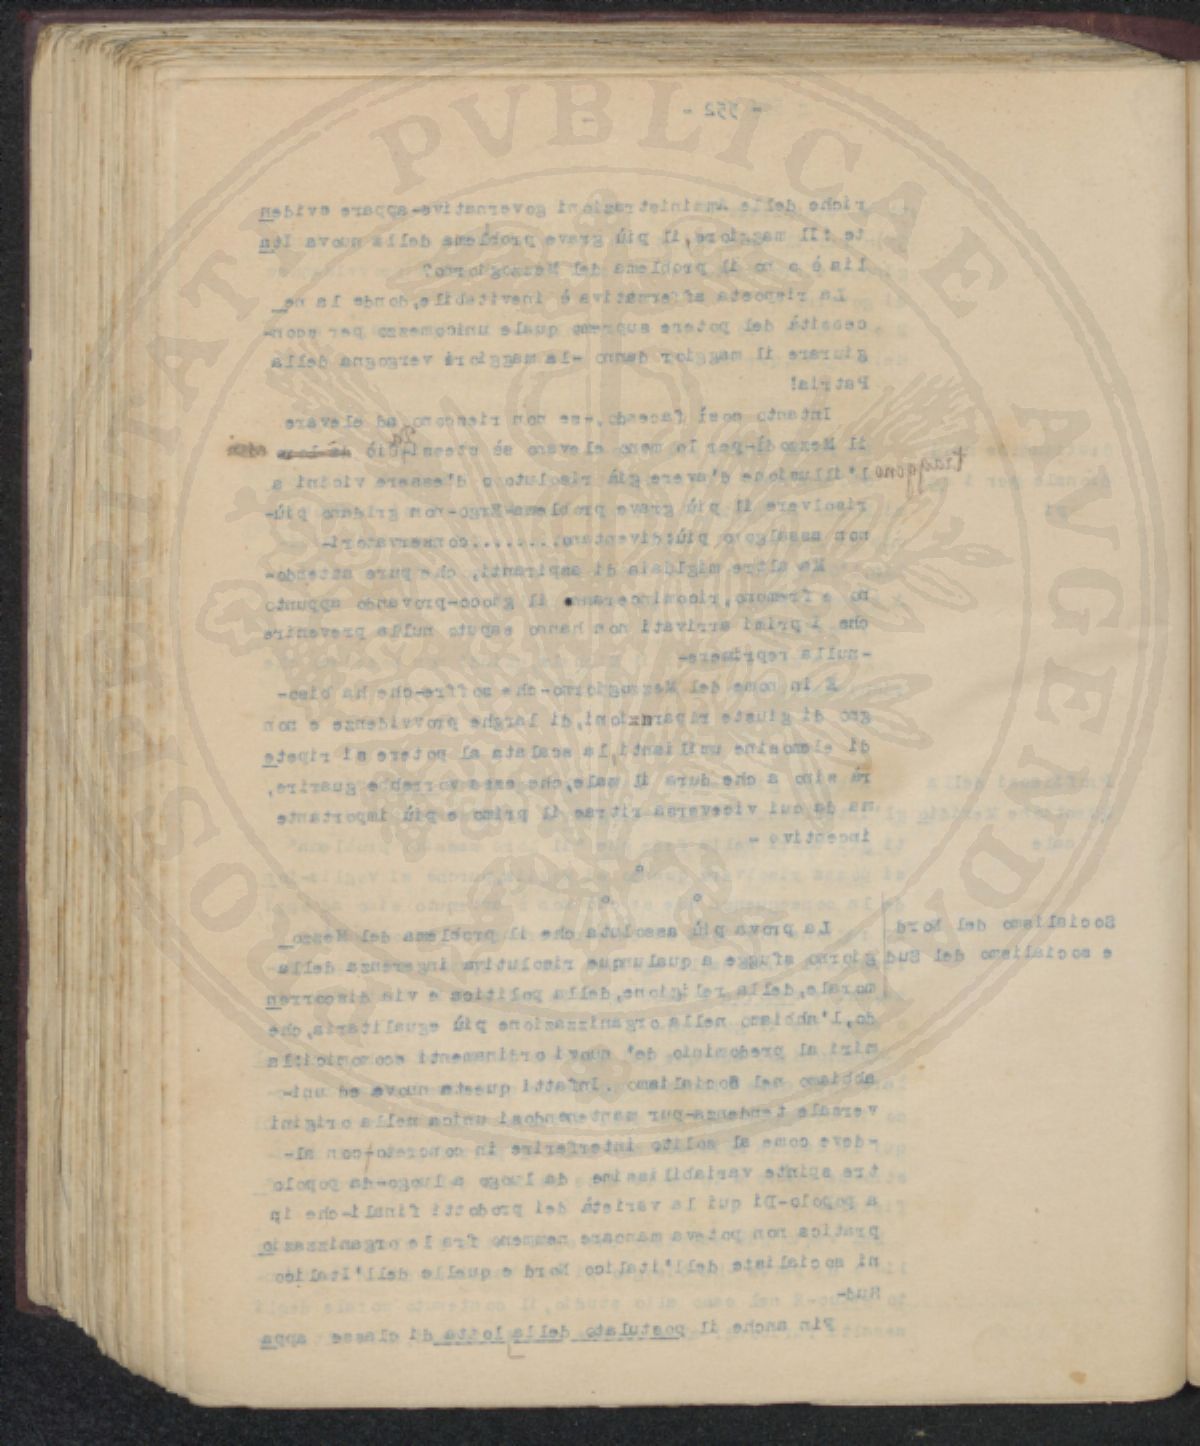 - 552 -
riche delle Amministrazioni governative-appare eviden
te :Il maggiore,il più grave problema della nuova Ita
lia è o no il problema del Mezzogiorno?
La risposta affermativa è inevitabile,donde la ne_
cessità del potere supremo quale unicomezzo per scon-
giurare il maggior danno -la maggiore vergogna della
Patria!
Intanto così facendo,-se non riescono ad elevare
il Mezzodì-per lo meno elevano sè stessi-Ciò
traggono l'illusione d'avere già risoluto o d'essere vicini a
risolvere il più grave problema-Ergo-non gridano più-
non assalgono più:diventano.........conservatori-
Ma altre migliaia di aspiranti, che pure attendo-
no e fremono,ricominceranno il giuoco-provando appunto
che i primi arrivati non hanno saputo nulla prevenire
-nulla reprimere-
E in nome del Mezzogiorno-che soffre-che ha biso-
gno di giuste riparazioni,di larghe provvidenze e non
di elemosine umilianti,la scalata al potere si ripete
rà sino a che dura il male,che essa vorrebbe guarire,
ma da cui viceversa ritrae il primo e più importante
incentivo -
° ° °
Socialismo del Nord
e socialismo del Sud
La prova più assoluta che il problema del Mezzo_
giorno sfugge a qualunque risolutiva ingerenza della
morale,della religione,della politica e via discorren
do,l'abbiamo nella organizzazione più egualitaria,che
miri al predominio de' nuovi ordinamenti economici:la
abbiamo nel Socialismo .Infatti questa nuova ed uni-
versale tendenza-pur mantenendosi unica nella origini
-deve come al solito interferire in concreto-con al-
tre spinte variabilissime da luogo a luogo-da popolo
a popolo-Di qui la varietà dei prodotti finali-che in
pratica non poteva mancare nemmeno fra le organizzazio
ni socialiste dell'italico Nord e quelle dell'Italico
Sud-
Fin anche il postulato della lotta di classe appa
PVBLICAE AVGENDAE